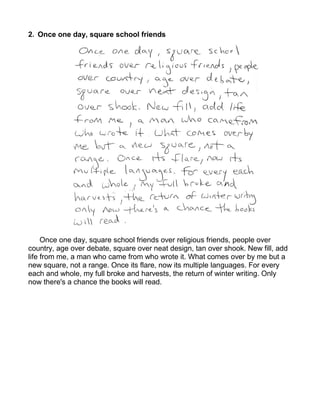 2. Once one day, square school friends
Once one day, square school
friends over religious friends, people
over country, age over debate,
square over next design, tan
over shook. New fill, add life
from me, a man who came from
who wrote it. What comes over by
me but a new square, not a
range. Once its flare, now its
multiple languages. For every each
and whole, my full broke and
harvests, the return of winter writing
only now there's a chance the books
will read.
Once one day, square school friends over religious friends, people over
country, age over debate, square over neat design, tan over shook. New fill, add
life from me, a man who came from who wrote it. What comes over by me but a
new square, not a range. Once its flare, now its multiple languages. For every
each and whole, my full broke and harvests, the return of winter writing. Only
now there's a chance the books will read.